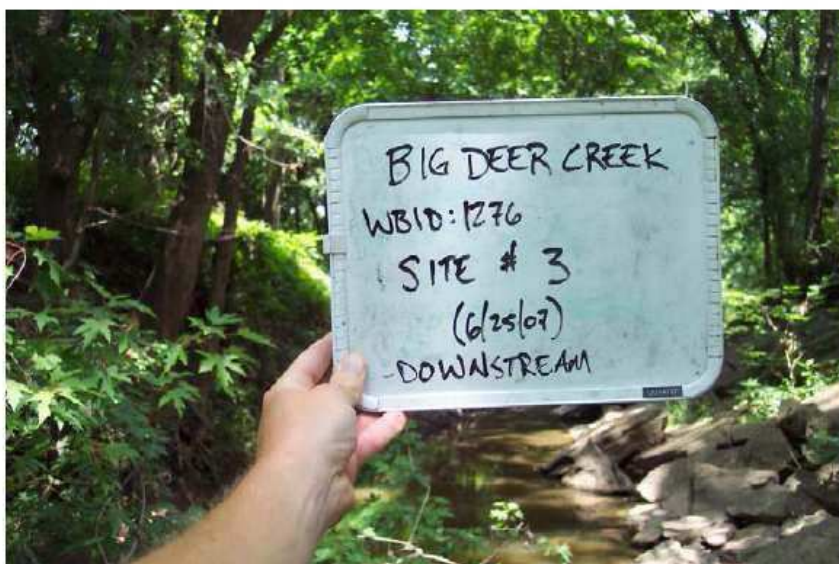 BIG DEER CREEK
WBID: 1276
SITE # 3
(6/25/07)
DOWNSTREAM